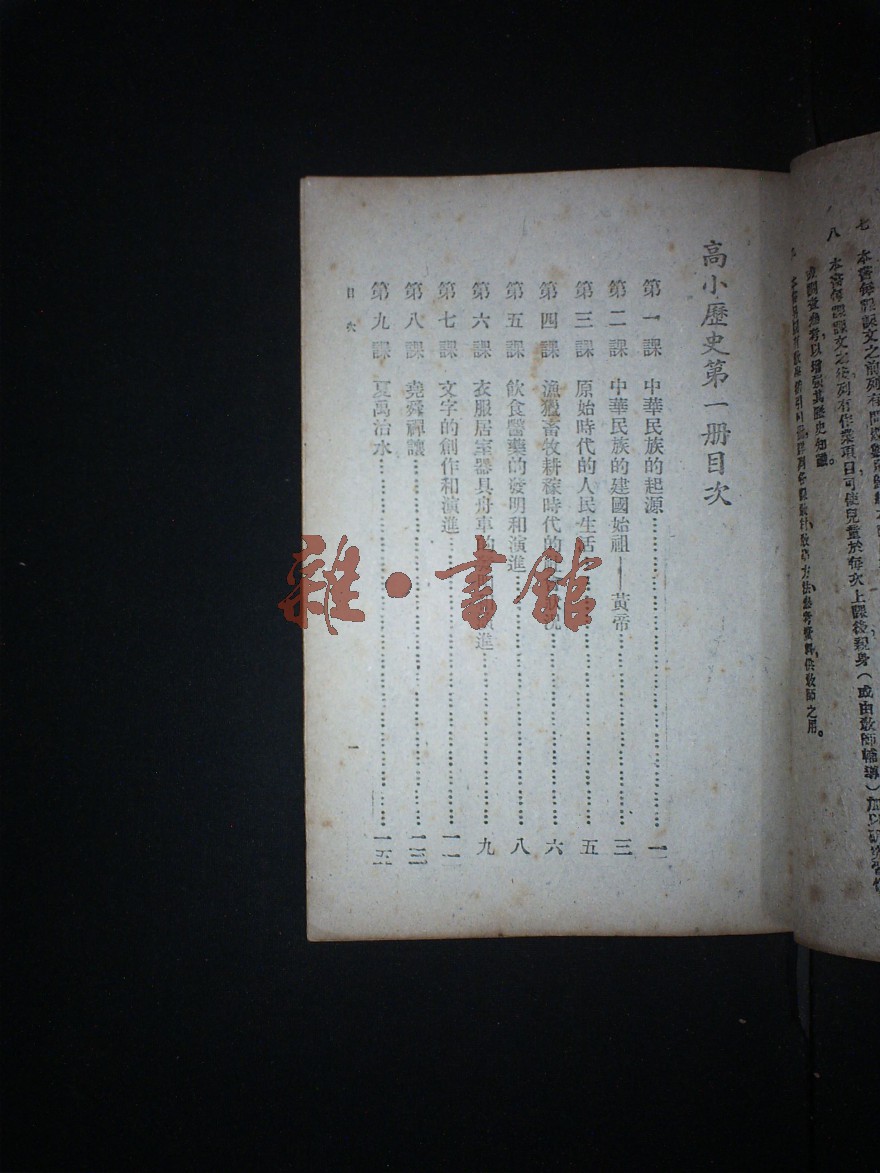 七 本書每課課文之前列有問題
八 本書每課課文之後列有作業項目可使兒童於每次上課後親身（或由教師輔導）加以研究習作
或調查參考以增强其歷史知識。
供教師之用。
高小歷史第一册目次
第一課 中華民族的起源……………………一
第二課 中華民族的建國始祖——黃帝……………………三
第三課 原始時代的人民生活……………………五
第四課 漁獵畜牧耕稼時代的……………………六
第五課 飲食醫藥的發明和演進……………………八
第六課 衣服居室器具舟車的 進……………………九
第七課 文字的創作和演進……………………一一
第八課 堯舜禪讓……………………一三
第九課 夏禹治水……………………一五
目次
一
雜·書館